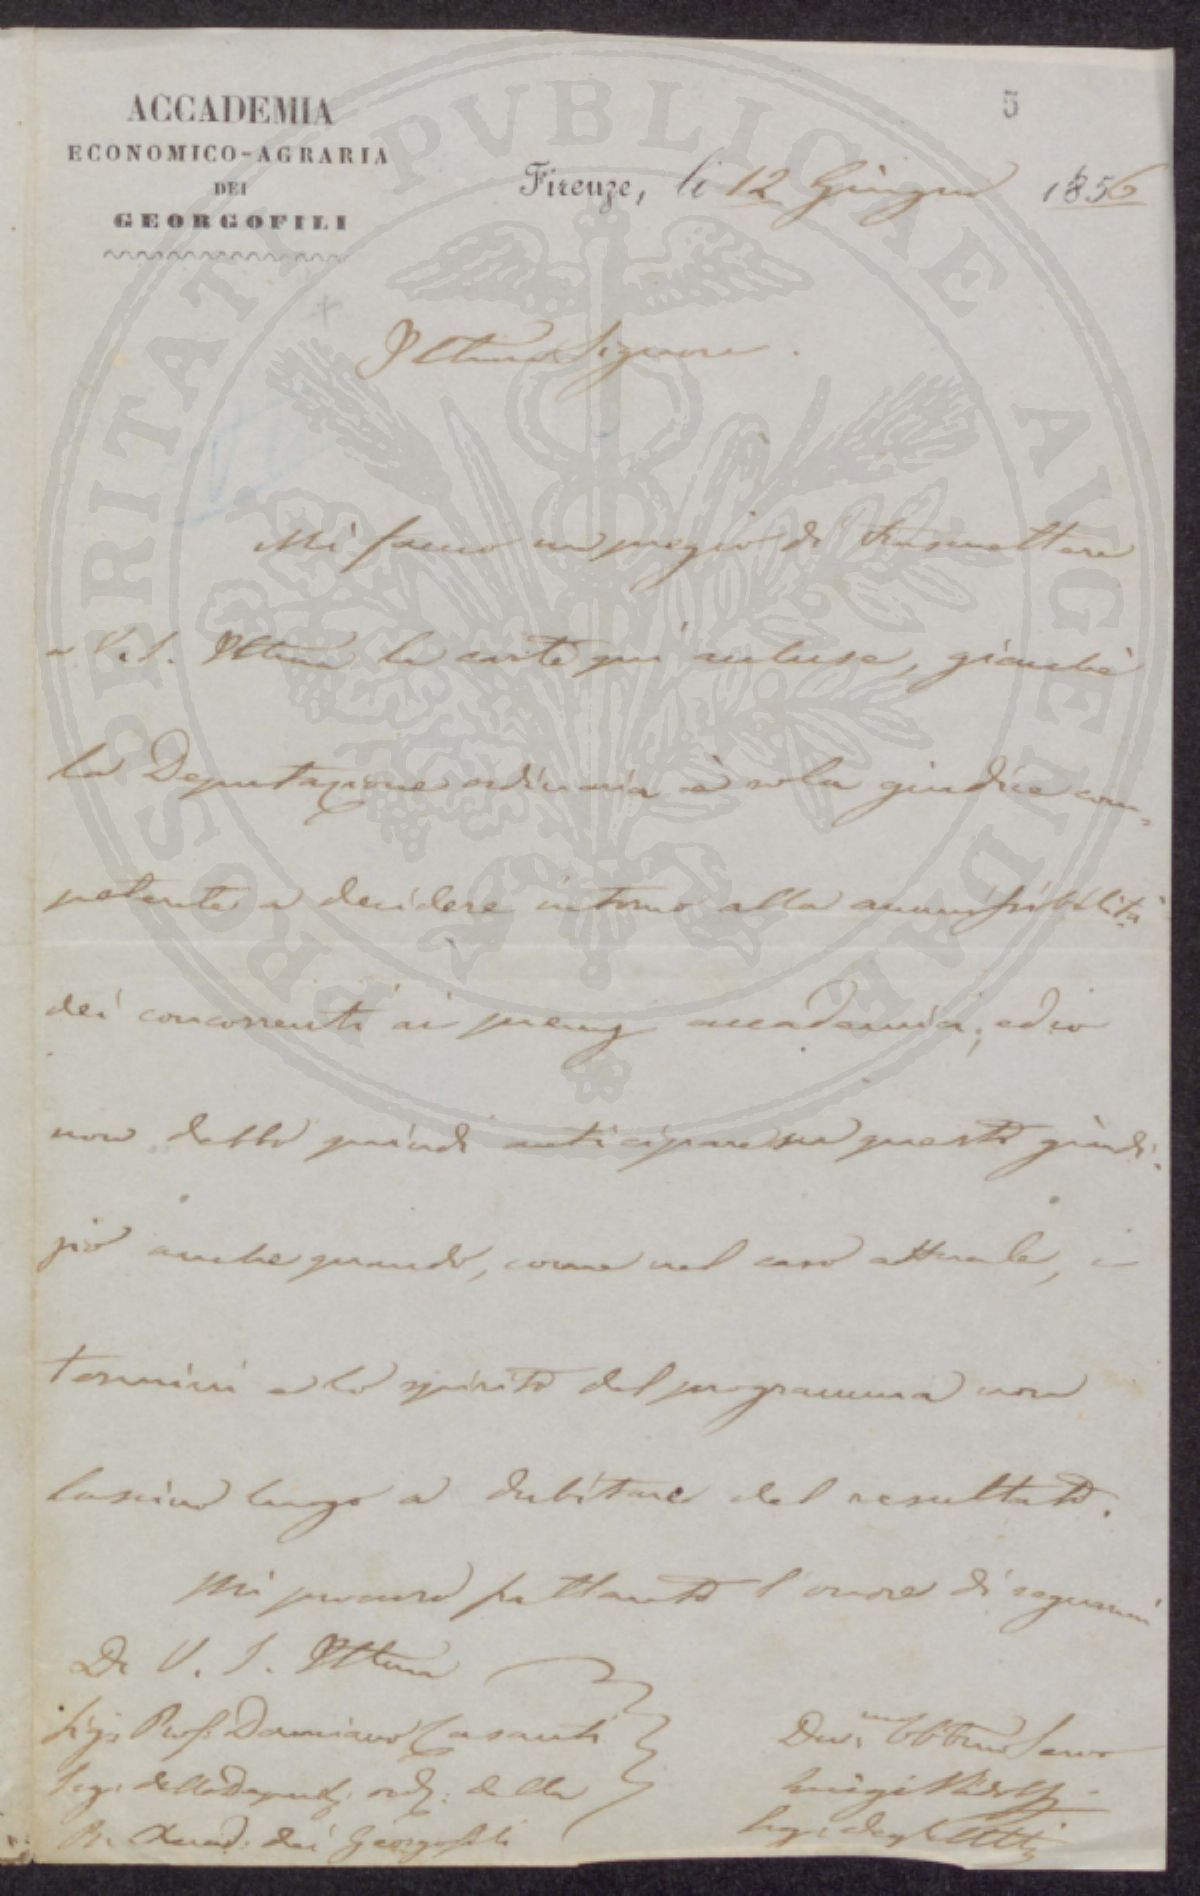 ACCADEMIA
ECONOMICO-AGRARIA
DEI
GEORGOFILI
5
Firenze, li 12 Giugno 1856
Illmo Signore.
Mi faccio un pregio di trasmettere
a V. S. Illma le carte quì accluse, giacchè
la Deputazione ordinaria è sola giudice com-
petente a decidere intorno alla ammissibilità
dei concorrenti ai premj accademici, ed io
non debbo quindi anticipare su questo giudi-
zio anche quando, come nel caso attuale, i
termini e lo spirito del programma non
lascino luogo a dubitare del resultato.
Mi procuro frattanto l'onore di segnarmi
Di V. S. Illma
Sigr. Prof. Damiano Casanti
Segr. della Deputaz. ord. della
R. Accad. dei Georgofili
Dev.mo Obbmo Servo
Luigi Ridolfi
Segr. degli Atti
PROSPERITATI PVBLICAE AVGENDAE